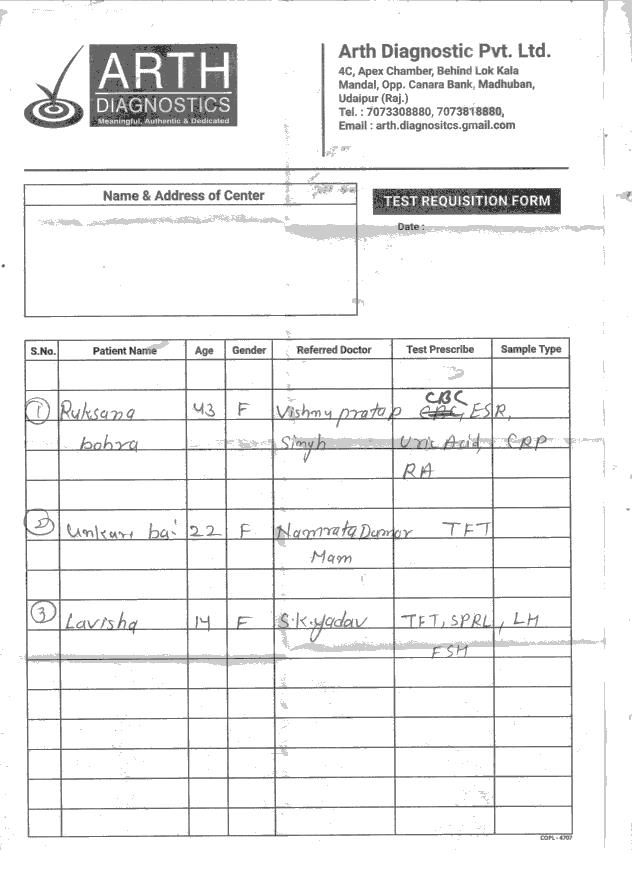 ARTH
DIAGNOSTICS
Meaningful, Authentic & Dedicated
Arth Diagnostic Pvt. Ltd.
4C, Apex Chamber, Behind Lok Kala
Mandal, Opp. Canara Bank, Madhuban,
Udaipur (Raj.)
Tel. : 7073308880, 7073818880,
Email : arth.diagnositcs.gmail.com
Name & Address of Center
TEST REQUISITION FORM
Date :
S.No. Patient Name Age Gender Referred Doctor Test Prescribe Sample Type
CBC
1 Ruksana 43 F Vishnu pratap CBC, ESR,
bohra Singh Uric Acid, CRP
RA
2 Unkari bai 22 F Namrata Damor TFT
Mam
3 Lavisha 14 F S.K.yadav TFT, SPRL, LH
FSH
COPL - 4707